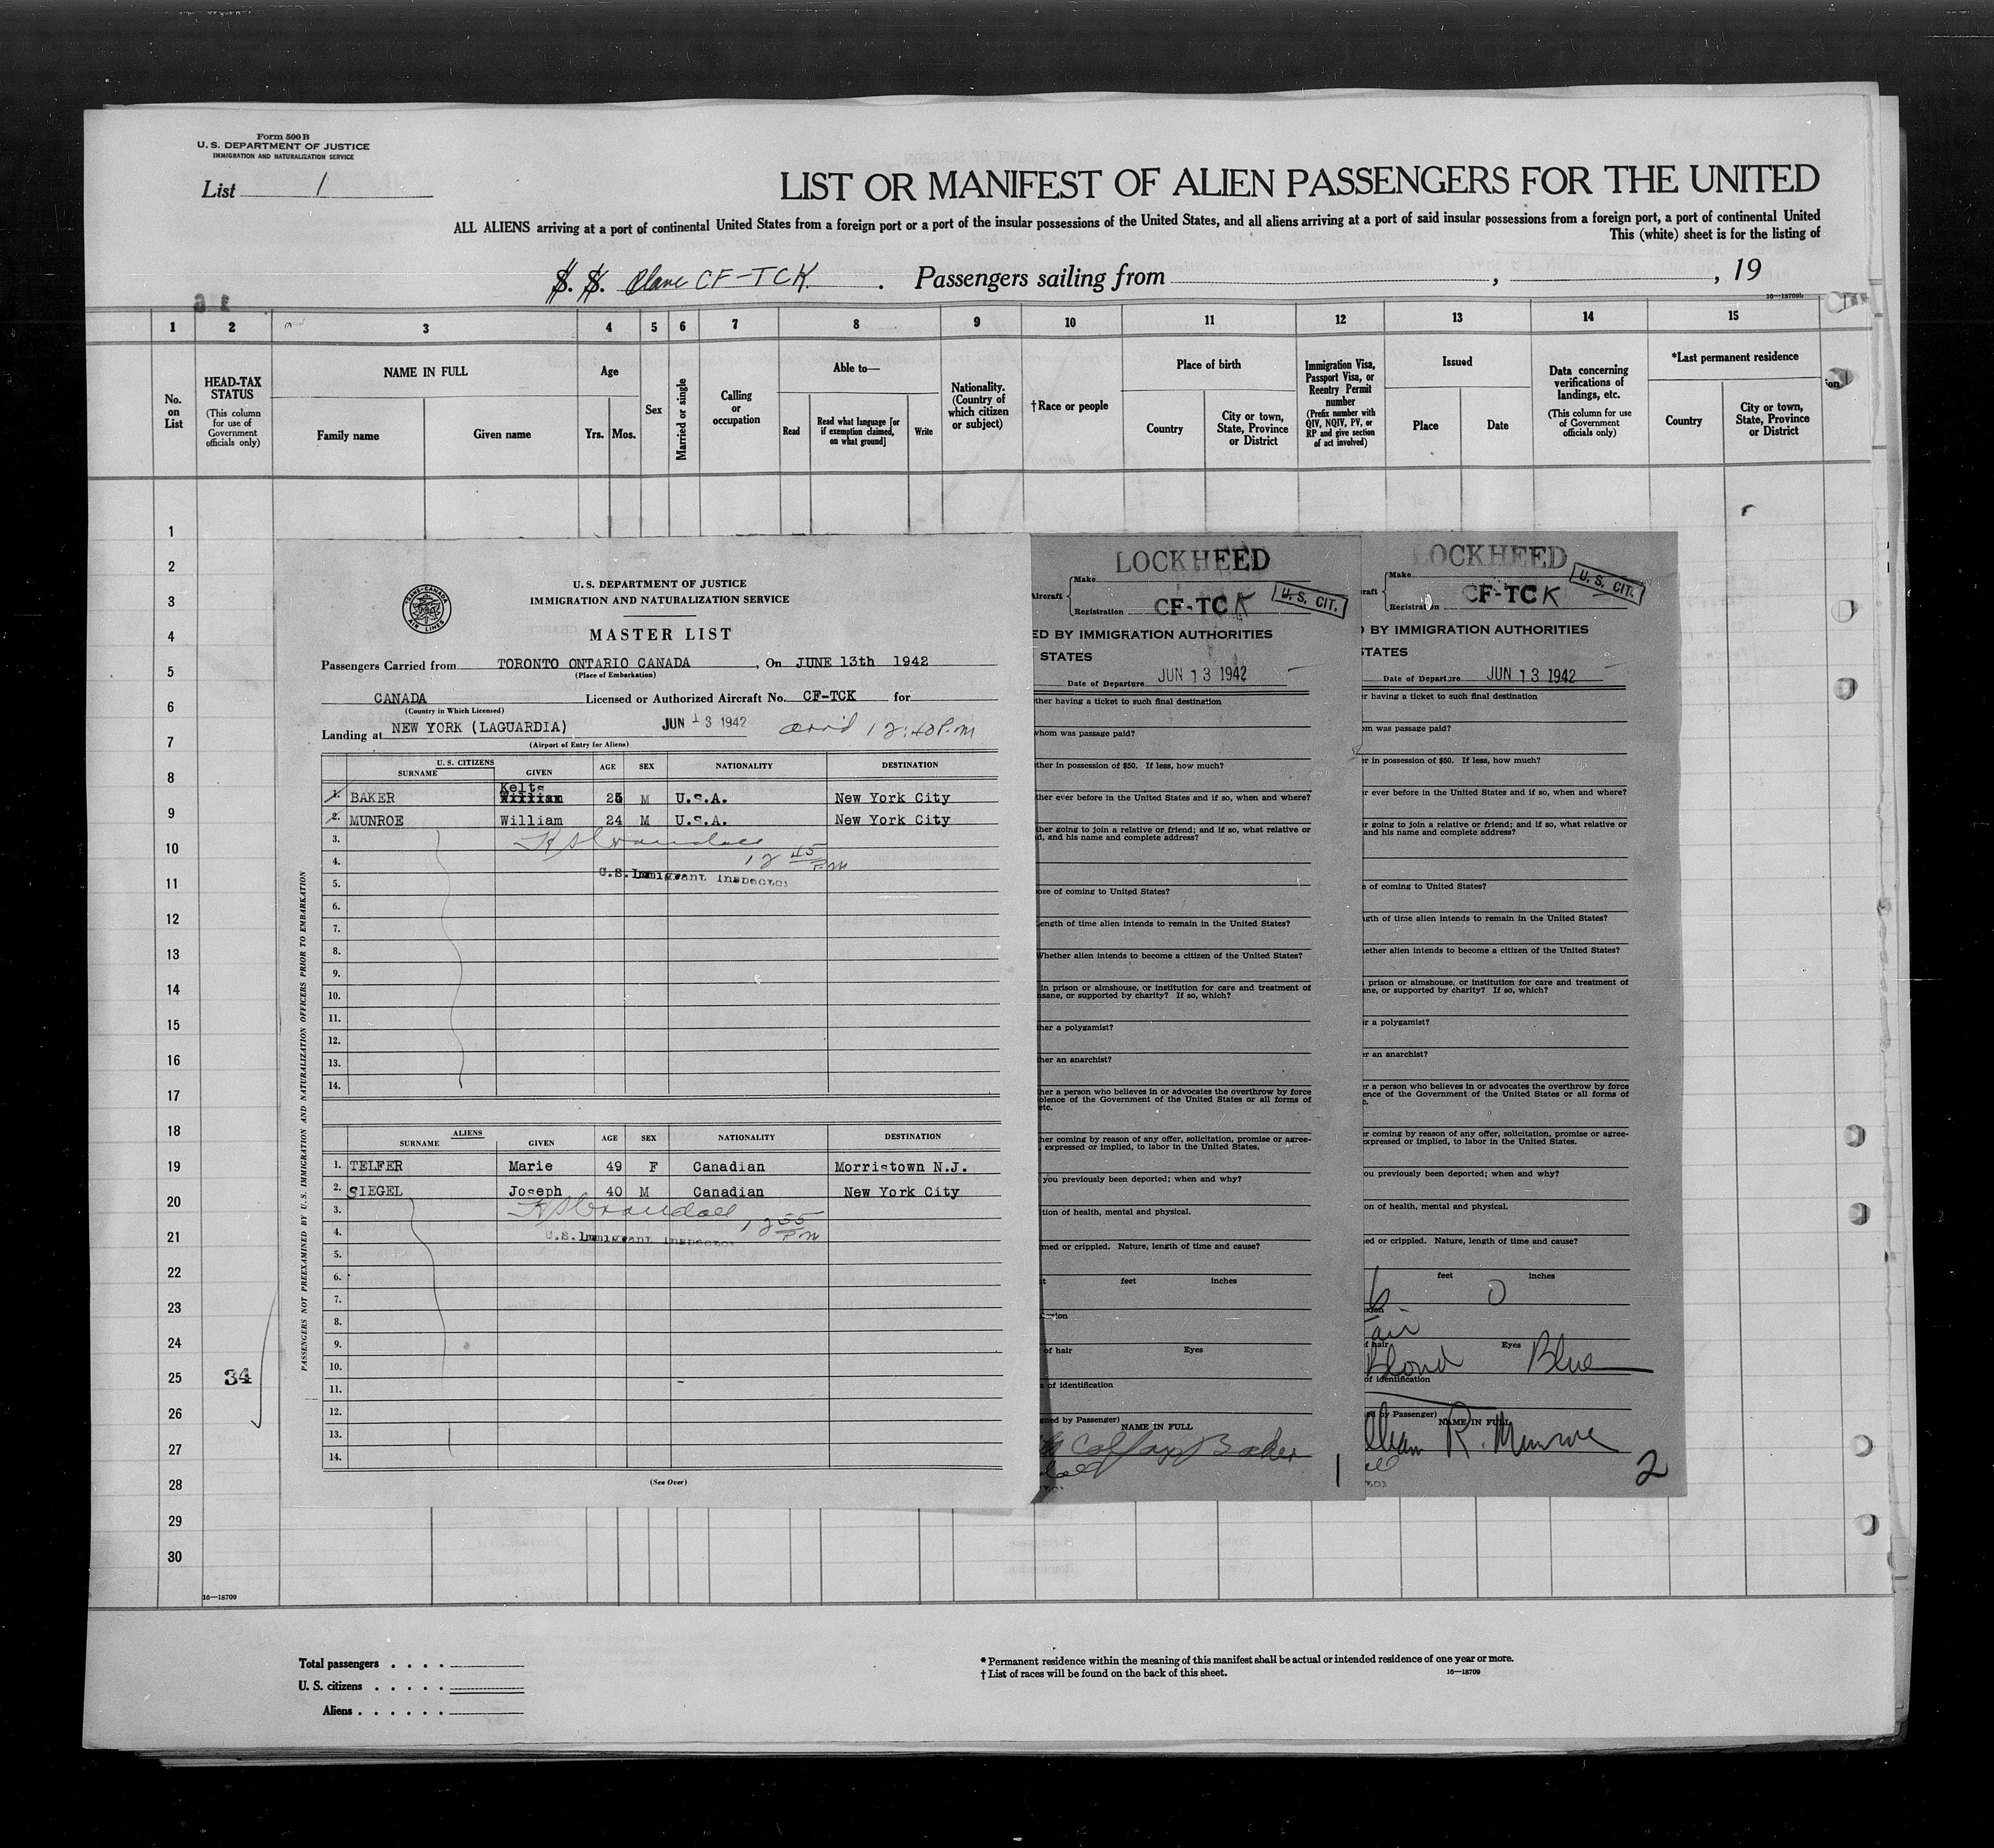 Form 500 B
U. S. DEPARTMENT OF JUSTICE
IMMIGRATION AND NATURALIZATION SERVICE
List 1
LIST OR MANIFEST OF ALIEN PASSENGERS FOR THE UNITED
ALL ALIENS arriving at a port of continental United States from a foreign port or a port of the insular possessions of the United States, and all aliens arriving at a port of said insular possessions from a foreign port, a port of continental United
This (white) sheet is for the listing of
S. S. Plane CF-TCK. Passengers sailing from , , 19
16—18709b
1 2 3 4 5 6 7 8 9 10 11 12 13 14 15
No. on List
HEAD-TAX STATUS
(This column for use of Government officials only)
NAME IN FULL
Family name Given name
Age
Yrs. Mos.
Sex
Married or single
Calling or occupation
Able to—
Read
Read what language [or if exemption claimed, on what ground]
Write
Nationality. (Country of which citizen or subject)
†Race or people
Place of birth
Country
City or town, State, Province or District
Immigration Visa, Passport Visa, or Reentry Permit number
(Prefix number with QIV, NQIV, PV, or RP and give section of act involved)
Issued
Place Date
Data concerning verifications of landings, etc.
(This column for use of Government officials only)
*Last permanent residence
Country
City or town, State, Province or District
1
2
3
4
5
6
7
8
9
10
11
12
13
14
15
16
17
18
19
20
21
22
23
24
25 34
26
27
28
29
30
16—18709
Total passengers
U. S. citizens
Aliens
* Permanent residence within the meaning of this manifest shall be actual or intended residence of one year or more.
† List of races will be found on the back of this sheet.
16—18709
TRANS-CANADA AIR LINES
U. S. DEPARTMENT OF JUSTICE
IMMIGRATION AND NATURALIZATION SERVICE
MASTER LIST
Passengers Carried from TORONTO ONTARIO CANADA, On JUNE 13th 1942
(Place of Embarkation)
CANADA Licensed or Authorized Aircraft No. CF-TCK for
(Country in Which Licensed)
Landing at NEW YORK (LAGUARDIA) JUN 13 1942 arr'd 12:40 P.M
(Airport of Entry for Aliens)
U. S. CITIZENS
SURNAME GIVEN AGE SEX NATIONALITY DESTINATION
Kelts
1. BAKER William 25 M U.S.A. New York City
2. MUNROE William 24 M U.S.A. New York City
3.
4. 12 45 PM
U.S. Immigrant Inspector
5.
6.
7.
8.
9.
10.
11.
12.
13.
14.
ALIENS
SURNAME GIVEN AGE SEX NATIONALITY DESTINATION
1. TELFER Marie 49 F Canadian Morristown N.J.
2. SIEGEL Joseph 40 M Canadian New York City
3.
4. 12 55 PM
U.S. Immigrant Inspector
5.
6.
7.
8.
9.
10.
11.
12.
13.
14.
(See Over)
PASSENGERS NOT PREEXAMINED BY U. S. IMMIGRATION AND NATURALIZATION OFFICERS PRIOR TO EMBARKATION
LOCKHEED
Make
Aircraft
Registration CF-TCK
U. S. CIT.
ED BY IMMIGRATION AUTHORITIES
STATES
Date of Departure JUN 13 1942
ther having a ticket to such final destination
whom was passage paid?
ther in possession of $50. If less, how much?
ther ever before in the United States and if so, when and where?
ther going to join a relative or friend; and if so, what relative or
d, and his name and complete address?
ose of coming to United States?
ength of time alien intends to remain in the United States?
Whether alien intends to become a citizen of the United States?
in prison or almshouse, or institution for care and treatment of
nsane, or supported by charity? If so, which?
ther a polygamist?
ther an anarchist?
ther a person who believes in or advocates the overthrow by force
olence of the Government of the United States or all forms of
etc.
ther coming by reason of any offer, solicitation, promise or agree-
expressed or implied, to labor in the United States.
you previously been deported; when and why?
ition of health, mental and physical.
med or crippled. Nature, length of time and cause?
t feet inches
exion
of hair Eyes
s of identification
ned by Passenger)
NAME IN FULL
Baker
1
LOCKHEED
Make
raft
Registration CF-TCK
U. S. CIT.
D BY IMMIGRATION AUTHORITIES
STATES
Date of Departure JUN 13 1942
er having a ticket to such final destination
om was passage paid?
er in possession of $50. If less, how much?
er ever before in the United States and if so, when and where?
er going to join a relative or friend; and if so, what relative or
and his name and complete address?
e of coming to United States?
ngth of time alien intends to remain in the United States?
hether alien intends to become a citizen of the United States?
prison or almshouse, or institution for care and treatment of
ane, or supported by charity? If so, which?
er a polygamist?
er an anarchist?
er a person who believes in or advocates the overthrow by force
ence of the Government of the United States or all forms of
c.
er coming by reason of any offer, solicitation, promise or agree-
expressed or implied, to labor in the United States.
ou previously been deported; when and why?
on of health, mental and physical.
ed or crippled. Nature, length of time and cause?
feet inches
6 0
exion
Fair
f hair Eyes
Blond Blue
of identification
ed by Passenger)
NAME IN FULL
lliam R. Munroe
2